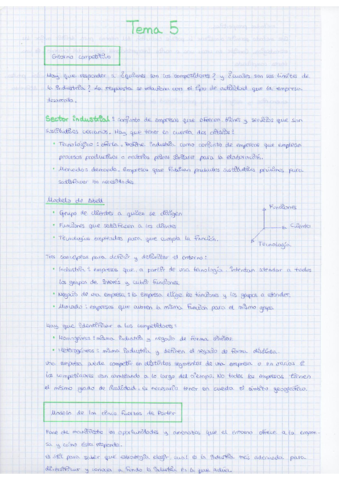 Tema 5
Entorno competitivo
Hay que responder a ¿quiénes son los competidores? y ¿cuáles son los límites de
la industria? Se responden en relación con el tipo de actividad que la empresa
desarrolla.
Sector Industrial: Conjunto de empresas que ofrecen bienes y servicios que son
sustitutivos cercanos. Hay que tener en cuenta dos
Tecnológico: oferta. Define Industria como conjunto de empresas que emplean
procesos productivos o materias primas similares para la elaboración.
Mercado: demanda. Empresas que fabrican productos sustitutivos para
satisfacer la necesidad.
Modelo de Abell
Grupo de clientes a quién se dirigen
Funciones que satisfacen a los clientes
Tecnología empleada para que cumpla la función.
Funciones
Clientes
Tecnología
Tres conceptos para dividir y delimitar el entorno:
Industria: empresas que a partir de una tecnología intentan atender a todos
los grupos de clientes y cubrir funciones
Negocio de una empresa: la empresa elige las funciones y los grupos a atender.
Mercado: empresas que cubren la misma función para el mismo grupo.
Hay que identificar a los competidores:
Homogénea: misma industria y negocio de forma similar.
Heterogénea: misma industria y definen el negocio de forma distinta.
Una empresa puede competir en distintos segmentos de una empresa o
los competidores van cambiando a lo largo del tiempo. No todas las empresas tienen
el mismo grado de rivalidad. Es necesario tener en cuenta el ámbito geográfico.
Análisis de las cinco fuerzas de Porter
Fase de analizar las oportunidades y amenazas que el entorno ofrece a la empre-
sa y cómo esta responde.
para saber que estrategia elegir, cual es la industria más adecuada para